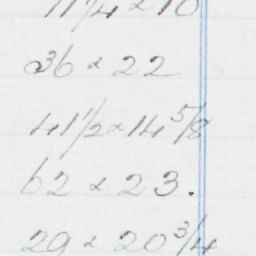 11 1/4 x 10
36 x 22
41 1/2 x 14 5/8
62 x 23.
29 x 20 3/4